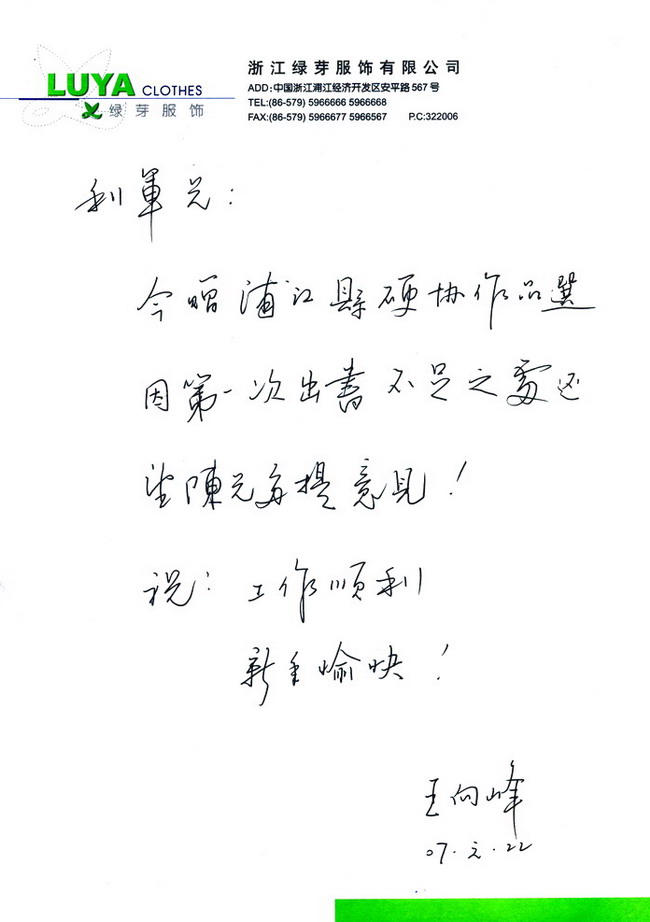 LUYA CLOTHES
绿芽服饰
浙江绿芽服饰有限公司
ADD:中国浙江浦江经济开发区安平路567号
TEL:(86-579) 5966666 5966668
FAX:(86-579) 5966677 5966567 P.C:322006
利軍兄：
今贈浦江縣硬协作品選
因第一次出書不足之處还
望陳兄多提意見！
祝：工作順利
新年愉快！
王向峰
07.元.22